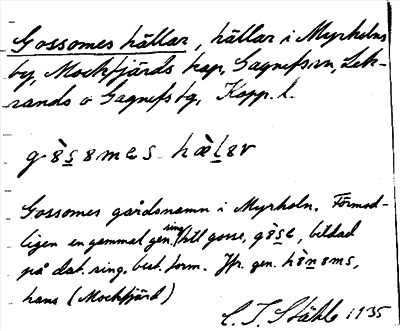 Gossomes hällar, hällar i Myrholns
by, Mockfjärds kap, Gagnefs sn, Lek-
sands o Gagnefs tg, Kopp. l.
gòsomes hæ̀lar
Gossomes gårdsnamn i Myrholn. Förmod-
ligen en gammal gen. sing till gosse, gòse, bildad
på dat. sing. best. form. Jfr. gen. hònoms,
hans (Mockfjärd)
C. I. Ståhle 1935